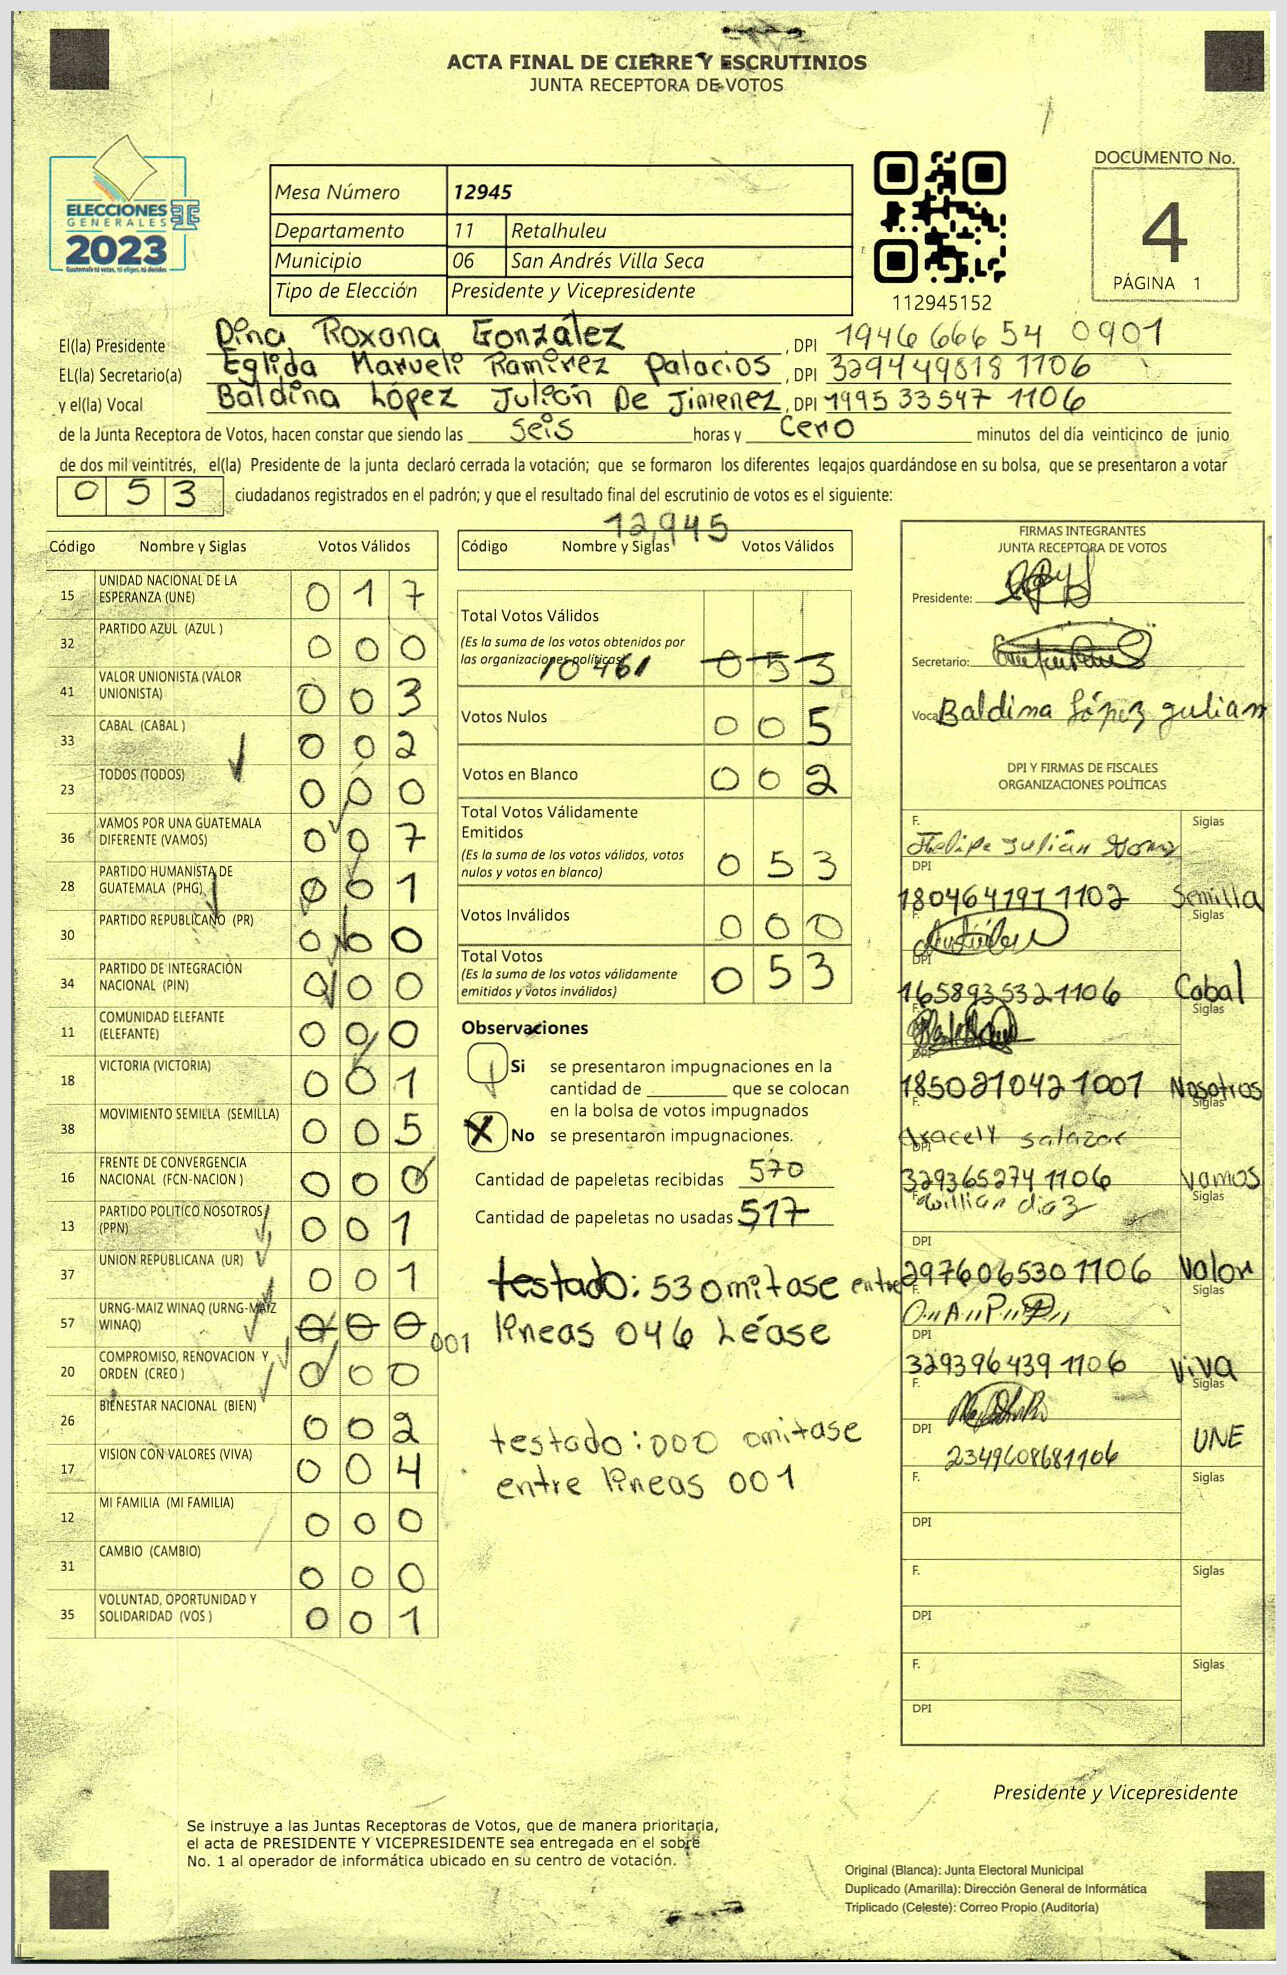 ACTA FINAL DE CIERRE Y ESCRUTINIOS
JUNTA RECEPTORA DE VOTOS
ELECCIONES
GENERALES
2023
Guatemala tú votas, tú eliges, tú decides
Mesa Número 12945
Departamento 11 Retalhuleu
Municipio 06 San Andrés Villa Seca
Tipo de Elección Presidente y Vicepresidente
112945152
DOCUMENTO No.
4
PÁGINA 1
El(la) Presidente Dina Roxana González, DPI 1946 666 54 0901
EL(la) Secretario(a) Eglida Marueli Ramirez Palacios, DPI 329449818 1106
y el(la) Vocal Baldina López Julián De Jimenez, DPI 1995 33547 1106
de la Junta Receptora de Votos, hacen constar que siendo las seis horas y cero minutos del día veinticinco de junio
de dos mil veintitrés, el(la) Presidente de la junta declaró cerrada la votación; que se formaron los diferentes legajos guardándose en su bolsa, que se presentaron a votar
053 ciudadanos registrados en el padrón; y que el resultado final del escrutinio de votos es el siguiente:
12,945
Código Nombre y Siglas Votos Válidos
15 UNIDAD NACIONAL DE LA ESPERANZA (UNE) 017
32 PARTIDO AZUL (AZUL ) 000
41 VALOR UNIONISTA (VALOR UNIONISTA) 003
33 CABAL (CABAL ) 002
23 TODOS (TODOS) 000
36 VAMOS POR UNA GUATEMALA DIFERENTE (VAMOS) 007
28 PARTIDO HUMANISTA DE GUATEMALA (PHG) 001
30 PARTIDO REPUBLICANO (PR) 000
34 PARTIDO DE INTEGRACIÓN NACIONAL (PIN) 000
11 COMUNIDAD ELEFANTE (ELEFANTE) 000
18 VICTORIA (VICTORIA) 001
38 MOVIMIENTO SEMILLA (SEMILLA) 005
16 FRENTE DE CONVERGENCIA NACIONAL (FCN-NACION ) 000
13 PARTIDO POLITICO NOSOTROS (PPN) 001
37 UNION REPUBLICANA (UR) 001
57 URNG-MAIZ WINAQ (URNG-MAIZ WINAQ) 000 001
20 COMPROMISO, RENOVACION Y ORDEN (CREO ) 000
26 BIENESTAR NACIONAL (BIEN) 002
17 VISION CON VALORES (VIVA) 004
12 MI FAMILIA (MI FAMILIA) 000
31 CAMBIO (CAMBIO) 000
35 VOLUNTAD, OPORTUNIDAD Y SOLIDARIDAD (VOS ) 001
Código Nombre y Siglas Votos Válidos
Total Votos Válidos
(Es la suma de los votos obtenidos por
las organizaciones políticas) 053
Votos Nulos 005
Votos en Blanco 002
Total Votos Válidamente
Emitidos
(Es la suma de los votos válidos, votos
nulos y votos en blanco) 053
Votos Inválidos 000
Total Votos
(Es la suma de los votos válidamente
emitidos y votos inválidos) 053
Observaciones
Si se presentaron impugnaciones en la
cantidad de ________ que se colocan
en la bolsa de votos impugnados
X No se presentaron impugnaciones.
Cantidad de papeletas recibidas 570
Cantidad de papeletas no usadas 517
testado: 53 omitase entre
lineas 046 Léase
testado: 000 omitase
entre lineas 001
FIRMAS INTEGRANTES
JUNTA RECEPTORA DE VOTOS
Presidente:
Secretario:
Vocal Baldina López Julian
DPI Y FIRMAS DE FISCALES
ORGANIZACIONES POLÍTICAS
F. Felipe Julián Siglas
DPI 180464191 1102 Semilla
F. Siglas
DPI 165893532 1106 Cabal
F. Siglas
DPI 185021042 1001 Nosotros
F. Aracely Salazar Siglas
DPI 329365274 1106 Vamos
F. Willian diaz Siglas
DPI 297606530 1106 Valor
F. Siglas
DPI 329396439 1106 Viva
F. Siglas
DPI 2349608681106 UNE
F. Siglas
DPI
F. Siglas
DPI
F. Siglas
DPI
Presidente y Vicepresidente
Se instruye a las Juntas Receptoras de Votos, que de manera prioritaria,
el acta de PRESIDENTE Y VICEPRESIDENTE sea entregada en el sobre
No. 1 al operador de informática ubicado en su centro de votación.
Original (Blanca): Junta Electoral Municipal
Duplicado (Amarilla): Dirección General de Informática
Triplicado (Celeste): Correo Propio (Auditoría)